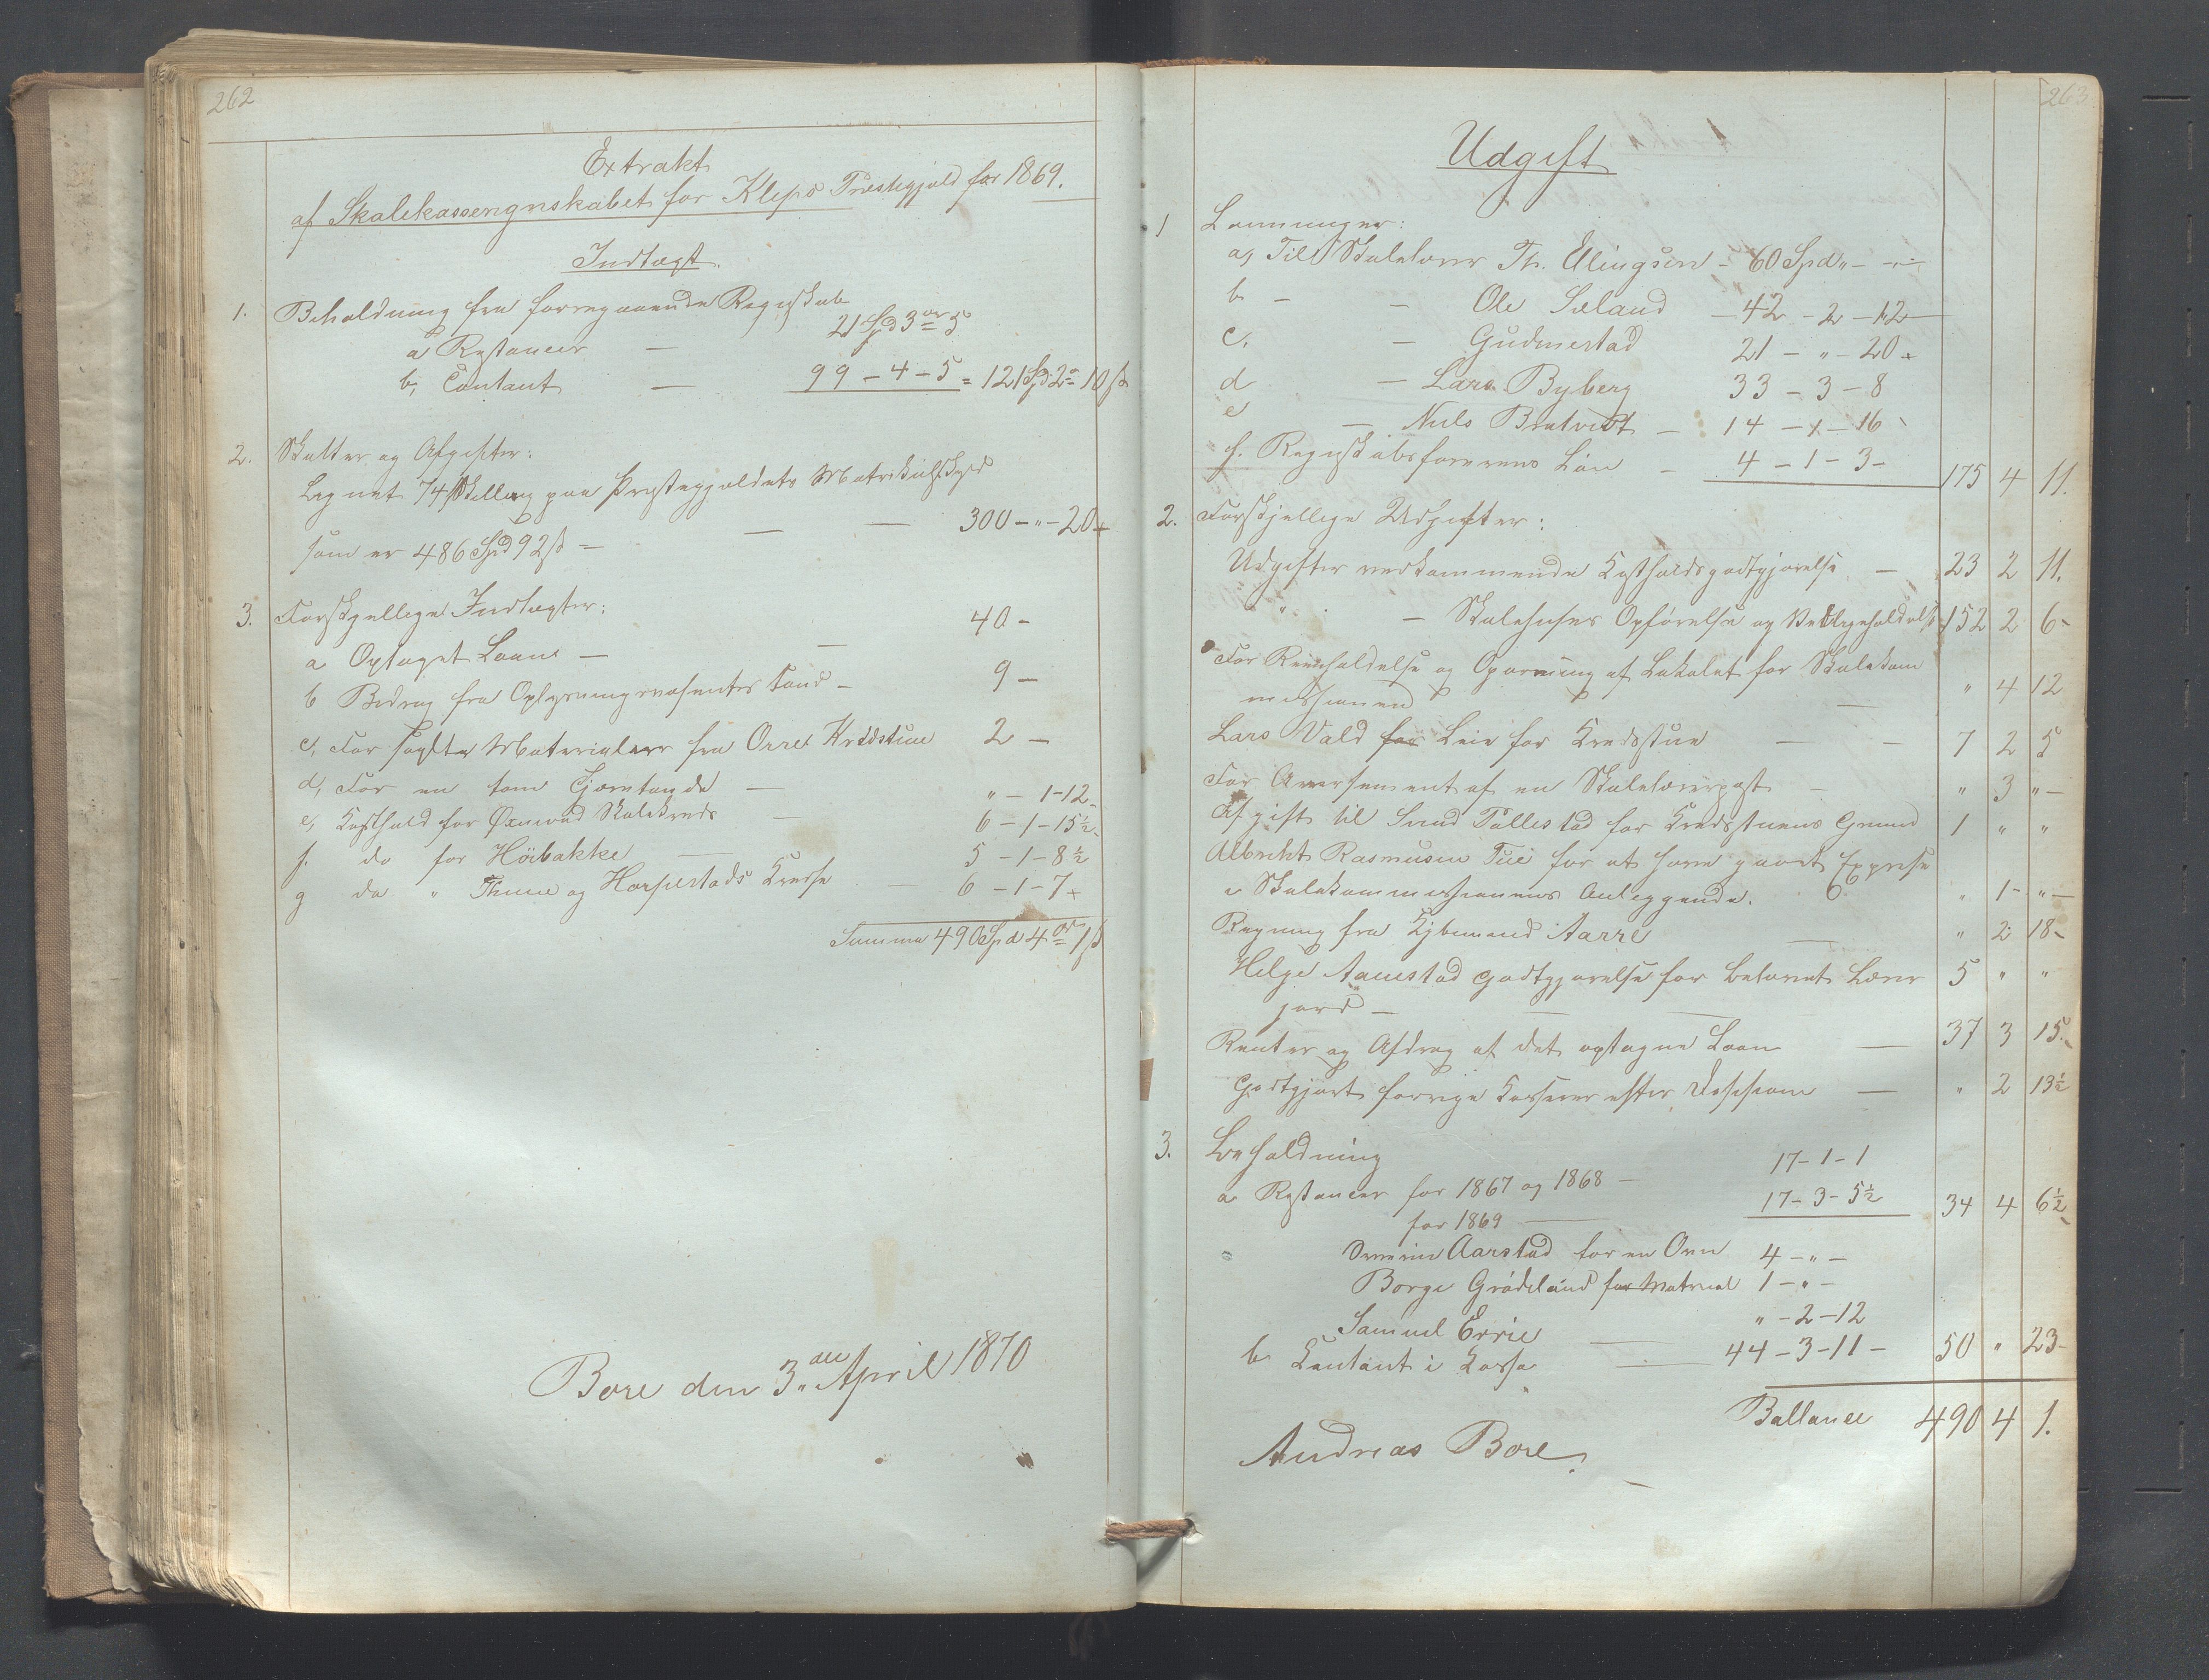 262
Extrakt
af Skolekasseregnskabet for Kleps Præstegjeld for 1869.
Indtægt.
1. Beholdning fra foregaaende Regnskab
a Restancer — 21 Spd 3 ort 5
b, Contant — 99 – 4 – 5 = 121 Spd 2 ort 10 ß
2. Skatter og Afgifter:
Lignet 74 Skilling paa Præstegjeldets Matrikulskyld
som er 486 Spd 92 ß = — — 300 – " – 20
3. Forskjellige Indtægter:
a Optaget Laan — — 40 –
b Bidrag fra Oplysningsvæsenets Fond – 9 –
c, For solgte Materialier fra Orre Kredstue 2 –
d, For en tom Tjæretønde — " – 1 – 12
e, Kosthold for Øxnevad Skolekreds — 6 – 1 – 15½
f. do for Höibakke — 5 – 1 – 8½
g do " Thime og Horpestads Kredse — 6 – 1 – 7
Summa 490 Spd 4 ort 1 ß
Bore den 3die April 1870
263
Udgift
1 Lønninger:
a, Til Skolelærer Th. Elingsen – 60 Spd " – –
b – – Ole Sæland – 42 – 2 – 12
c. – Gudmestad 21 – " – 20
d – Lars Byberg 33 – 3 – 8
e – Niels Bratvedt – 14 – – 16
f. Regnskabsførerens Løn – 4 – 1 – 3 – 175 4 11.
2. Forskjellige Udgifter:
Udgifter vedkommende Kostholdsgodtgjørelse — 23 2 11.
" – Skolehuses Opførelse og Vedligeholdelse 152 2 6
For Reenholdelse og Opvarming af Lokalet for Skolekom
missionen — " 4 12
Lars Vald for Leie for Kredsstue — — 7 2 5
For Avertisement af en Skolelærerpost – " 3 " –
Afgift til Svend Tallestad for Kredsstuens Grund 1 " "
Albrekt Rasmusen Tue for at have gaaet Expresse
i Skolekommissionens Anliggende. " 1 – " –
Regning fra Kjøbmand Aarre — " 2 18
Helge Aanestad Godtgjørelse for Betornet Lærer
jord — — — 5 " "
Renter og Afdrag af det optagne Laan — 37 3 15.
Godtgjort forrige Kasserer efter Desision — " 2 13½
3. Beholdning
a Restancer for 1867 og 1868 — 17 – 1 – 1
for 1869 — 17 – 3 – 5½ 34 4 6½
Aarstad for en Ovn 4 – " –
Borge Grödeland for Material 1 – " –
Samuel Errie — " – 2 – 12
b Contant i Kasse — 44 – 3 – 11 – 50 " 23
Ballance 490 4 1.
Andreas Bore.